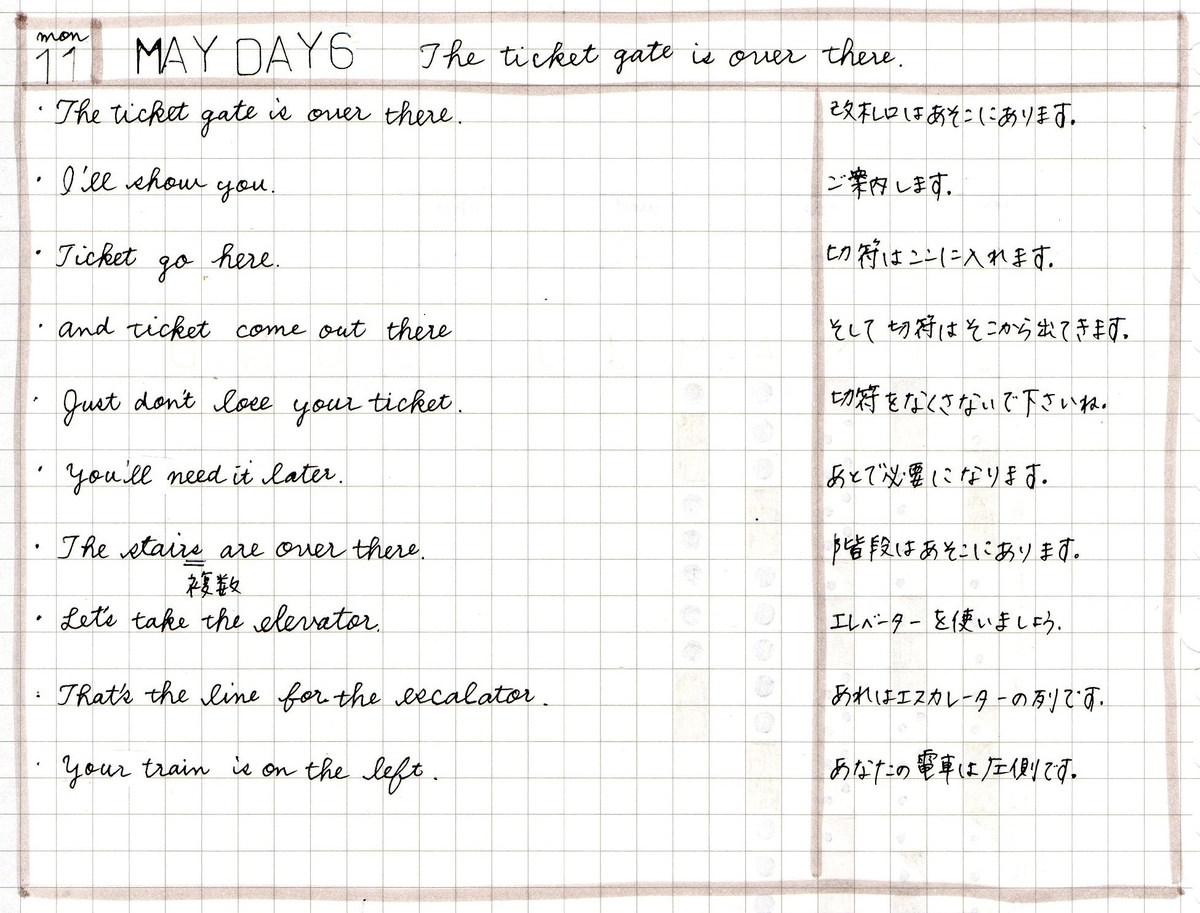 mon
11 MAY DAY6 The ticket gate is over there.
・The ticket gate is over there. 改札口はあそこにあります。
・I'll show you. ご案内します。
・Ticket go here. 切符はここに入れます。
・and ticket come out there そして切符はそこから出てきます。
・Just don't lose your ticket. 切符をなくさないで下さいね。
・You'll need it later. あとで必要になります。
・The stairs are over there. 階段はあそこにあります。
複数
・Let's take the elevator. エレベーターを使いましょう.
・That's the line for the escalator. あれはエスカレーターの列です。
・Your train is on the left. あなたの電車は左側です。